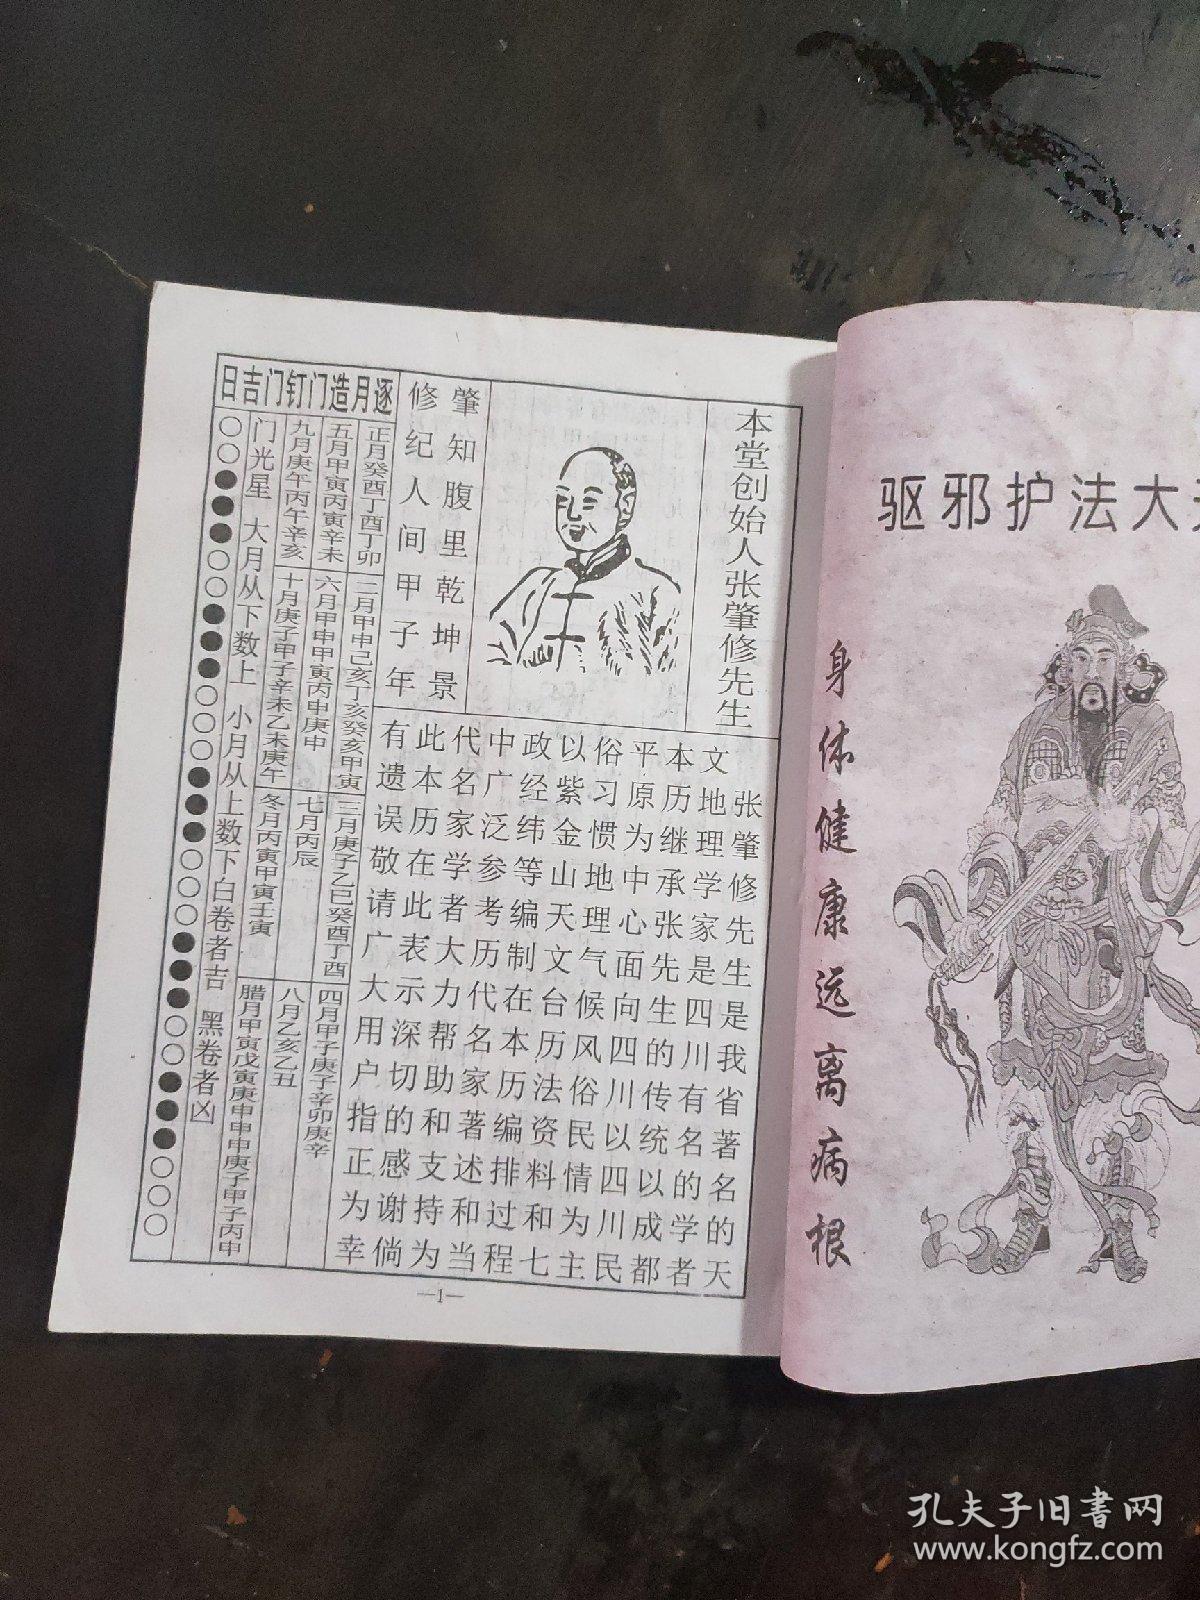 本堂创始人张肇修先生
肇知腹里乾坤景
修纪人间甲子年
张肇修先生是我省著名的天
文地理学家是四川有名的学者
本历继承张先生的传统以成都
平原为中心面向四川以四川民
俗习惯地理气候风俗民情为主
以紫金山天文台历法资料和七
政经纬等编制在本历编排过程
中广泛参考历代名家著述和当
代名家学者大力帮助和支持为
此本历在此表示深切的感谢倘
有遗误敬请广大用户指正为幸
逐月造门钉门吉日
正月癸酉丁酉丁卯
二月甲申己亥丁亥癸亥甲寅
三月庚子乙巳癸酉丁酉
四月甲子庚子辛卯庚辛
五月甲寅丙寅辛未
六月甲申甲寅丙申庚申
七月丙辰
八月乙亥乙丑
九月庚午丙午辛亥
十月庚子甲子辛未乙未庚午
冬月丙寅甲寅壬寅
腊月甲寅戊寅庚申甲申庚子甲子丙申
门光星 大月从下数上 小月从上数下白卷者吉 黑卷者凶
—1—
驱邪护法大
身体健康远离病根
孔夫子旧书网
www.kongfz.com